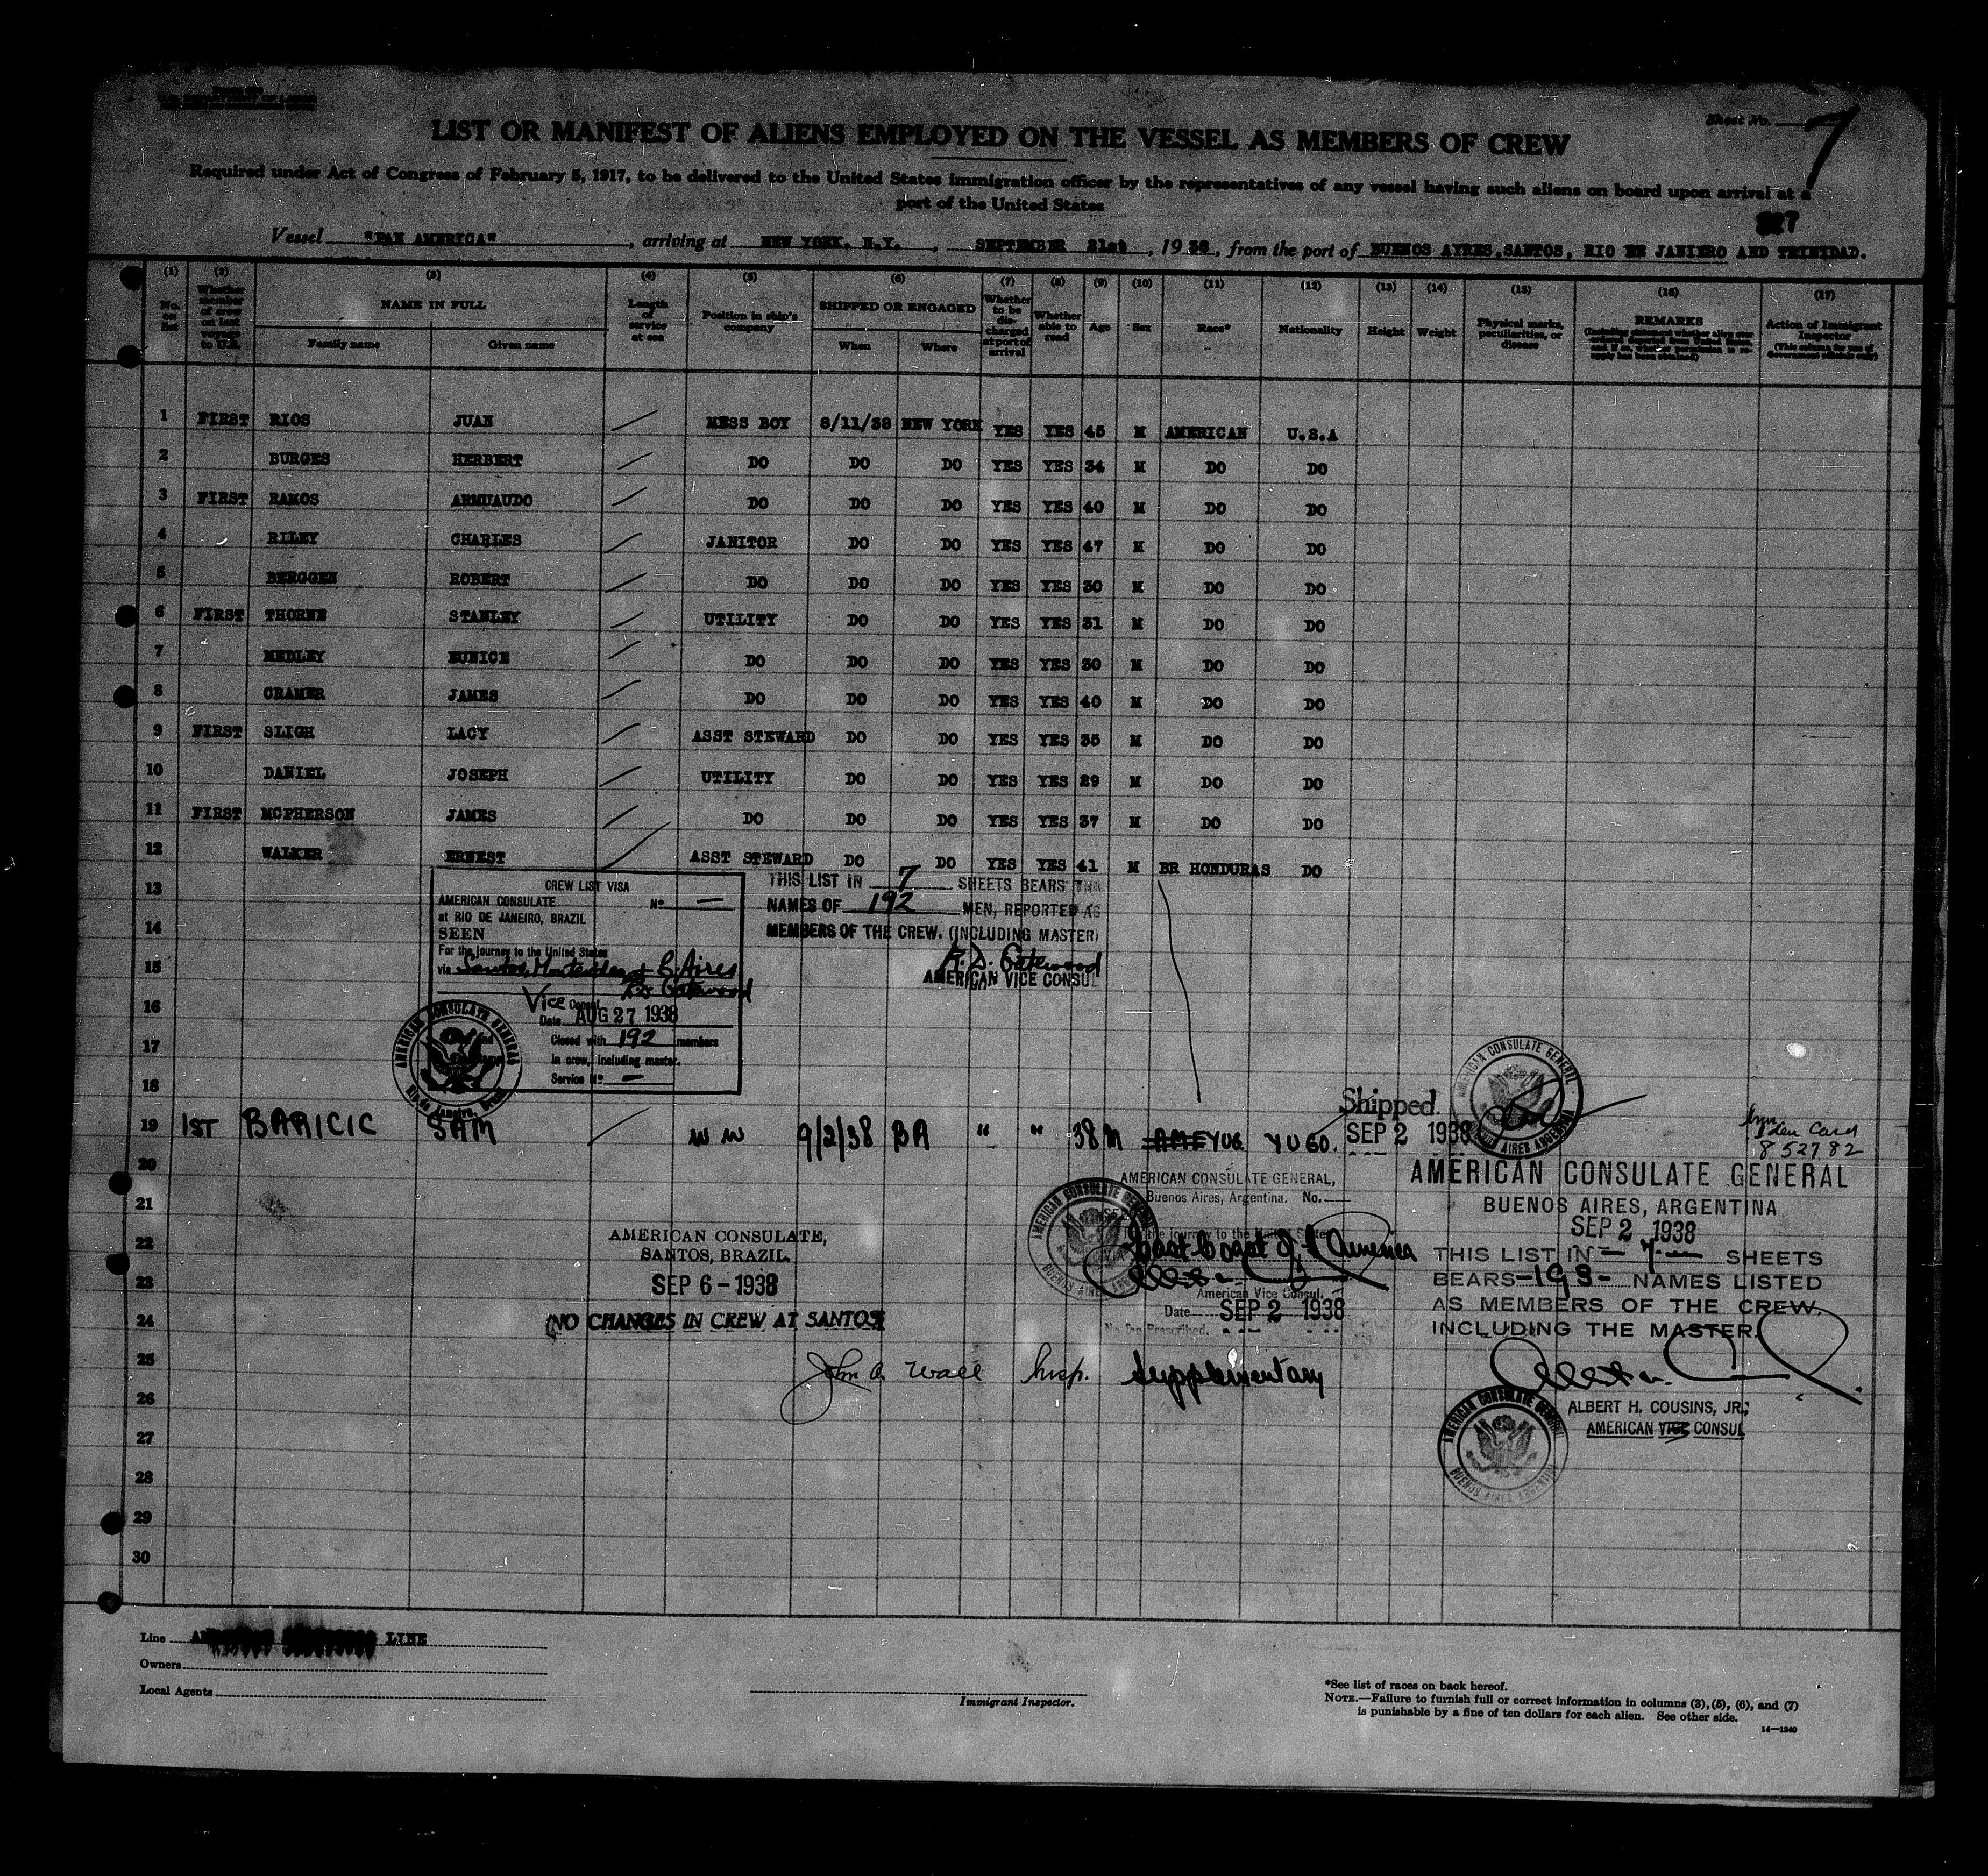 Sheet No. 7
LIST OR MANIFEST OF ALIENS EMPLOYED ON THE VESSEL AS MEMBERS OF CREW
Required under Act of Congress of February 5, 1917, to be delivered to the United States Immigration officer by the representatives of any vessel having such aliens on board upon arrival at a
port of the United States
Vessel "PAN AMERICA", arriving at NEW YORK, N.Y., SEPTEMBER 21st, 1938, from the port of BUENOS AYRES, SANTOS, RIO DE JANIERO AND TRINIDAD.
(1) (2) (3) (4) (5) (6) (7) (8) (9) (10) (11) (12) (13) (14) (15) (16) (17)
No. on list
Whether member of crew on last voyage to U.S.
NAME IN FULL
Family name Given name
Length of service at sea
Position in ship's company
SHIPPED OR ENGAGED
When Where
Whether to be discharged at port of arrival
Whether able to read
Age Sex Race* Nationality Height Weight
Physical marks, peculiarities, or disease
REMARKS
Action of Immigrant Inspector
(This column for use of Government officials only)
1 FIRST RIOS JUAN MESS BOY 8/11/38 NEW YORK YES YES 45 M AMERICAN U.S.A
2 BURGES HERBERT DO DO DO YES YES 34 M DO DO
3 FIRST RAMOS ARMUAUDO DO DO DO YES YES 40 M DO DO
4 RILEY CHARLES JANITOR DO DO YES YES 47 M DO DO
5 BERGGEN ROBERT DO DO DO YES YES 30 M DO DO
6 FIRST THORNE STANLEY UTILITY DO DO YES YES 31 M DO DO
7 MEDLEY EUNICE DO DO DO YES YES 30 M DO DO
8 CRAMER JAMES DO DO DO YES YES 40 M DO DO
9 FIRST SLIGH LACY ASST STEWARD DO DO YES YES 35 M DO DO
10 DANIEL JOSEPH UTILITY DO DO YES YES 29 M DO DO
11 FIRST MCPHERSON JAMES DO DO DO YES YES 37 M DO DO
12 WALKER ERNEST ASST STEWARD DO DO YES YES 41 M BR HONDURAS DO
13
14
15
16
17
18
CREW LIST VISA
AMERICAN CONSULATE No. —
at RIO DE JANEIRO, BRAZIL
SEEN
For the journey to the United States
via Santos, Montevideo + B. Aires
Vice Consul
Date AUG 27 1938
Closed with 192 members
in crew, including master.
Service No. —
AMERICAN CONSULATE GENERAL
Rio de Janeiro, Brazil
THIS LIST IN 7 SHEETS BEARS THE
NAMES OF 192 MEN, REPORTED AS
MEMBERS OF THE CREW. (INCLUDING MASTER)
AMERICAN VICE CONSUL
Shipped.
SEP 2 1938
AMERICAN CONSULATE GENERAL
BUENOS AIRES ARGENTINA
19 1ST BARICIC SAM W W 9/2/38 BA " " 38 M AME YUG. YUGO.
Iden Card
852782
20
21
22
23
24
25
26
27
28
29
30
AMERICAN CONSULATE,
SANTOS, BRAZIL.
SEP 6 - 1938
(NO CHANGES IN CREW AT SANTOS)
AMERICAN CONSULATE GENERAL,
Buenos Aires, Argentina. No.
the journey to the United States
East Coast of S America
American Vice Consul.
Date SEP 2 1938
No Fee Prescribed.
AMERICAN CONSULATE GENERAL
BUENOS AIRES, ARGENTINA
SEP 2 1938
THIS LIST IN — 7 — SHEETS
BEARS -193- NAMES LISTED
AS MEMBERS OF THE CREW,
INCLUDING THE MASTER.
ALBERT H. COUSINS, JR.,
AMERICAN VICE CONSUL
AMERICAN CONSULATE GENERAL
BUENOS AIRES ARGENTINA
John A. Wall Insp. Supplementary
Line LINE
Owners
Local Agents
Immigrant Inspector.
*See list of races on back hereof.
NOTE.—Failure to furnish full or correct information in columns (3), (5), (6), and (7)
is punishable by a fine of ten dollars for each alien. See other side.
14—1240